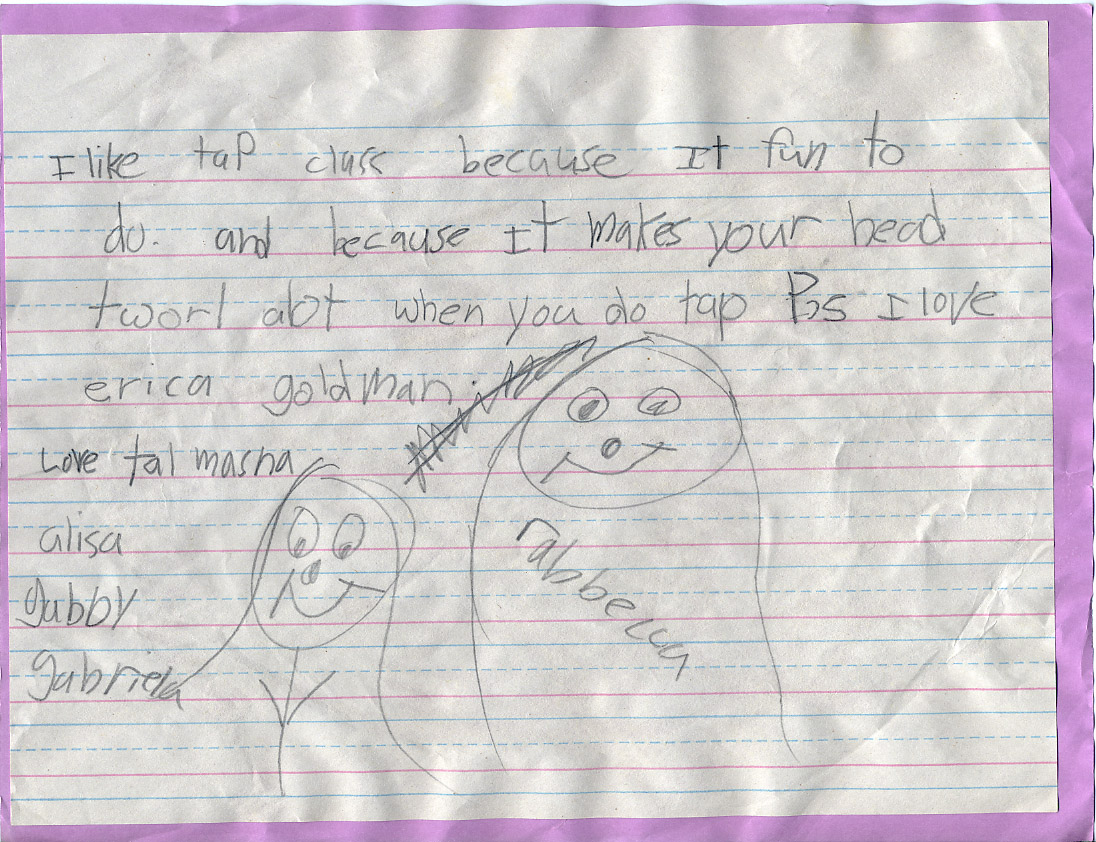 I like tap class because It fun to
do. and because It makes your head
tworl abt when you do tap P.s I love
erica goldman.
Love tal masha
alisa
gabby
gabriela